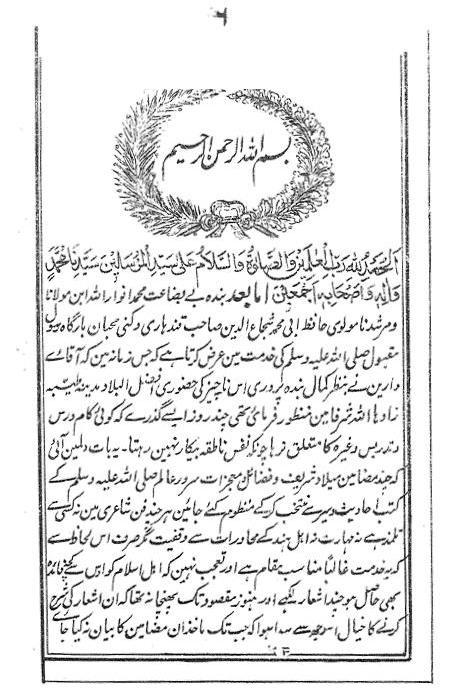 ۲
بسم اللہ الرحمن الرحیم
اَلحَمدُ لِلّٰہِ رَبِّ العٰلَمِینَ وَالصَّلٰوۃُ وَالسَّلَامُ عَلٰی سَیِّدِ المُرسَلِینَ سَیِّدِنَا مُحَمَّدٍ
وَاٰلِہٖ وَاَصحَابِہٖ اَجمَعِینَ اما بعد بندہ بے بضاعت محمد انوار اللہ ابن مولانا
و مرشدنا مولوی حافظ ابی محمد شجاع الدین صاحب قندہاری دکنی محبان بارگاہ رسول
مقبول صلی اللہ علیہ وسلم کی خدمت مین عرض کرتا ہے کہ جس زمانہ مین کہ آقاے
دارین نے بنظر کمال بندہ پروری اس ناچیز کی حضوری افضل البلاد مدینہ طیبہ
زادہا اللہ شرفا مین منظور فرمائی تھی چند روز ایسے گذرے کہ کوئی کام درس
و تدریس وغیرہ کا متعلق نرہا چونکہ نفس ناطقہ بیکار نہین رہتا۔ یہ بات دلمین آئی
کہ چند مضامین میلاد شریف و فضائل و معجزات سرور عالم صلی اللہ علیہ وسلم کے
کتب احادیث و سیر سے منتخب کرکے منظوم کئے جائین ہر چند فن شاعری مین نہ کسی سے
تلمذ ہے نہ مہارت نہ اہل ہند کے محاورات سے وقفیت مگر صرف اس لحاظ سے
کہ یہ خدمت غالباً مناسب مقام ہے اور تعجب نہین کہ اہل اسلام کو اس سے کچھ فائدہ
بھی حاصل ہو چند اشعار لکھے اور ہنوز مقصود تک پھنچا نہ تھا کہ ان اشعار کی شرح
کرنے کا خیال اس وجہ سے پیدا ہوا کہ جب تک ماخذ ان مضامین کا بیان نہ کیا جاے